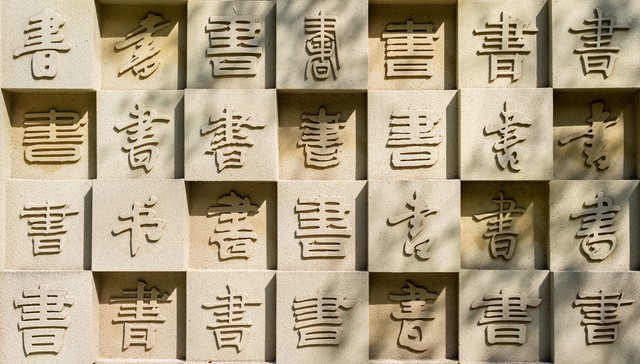 書書書書書書書
書書書書書書書
書书書書書書書
書書書書書書書